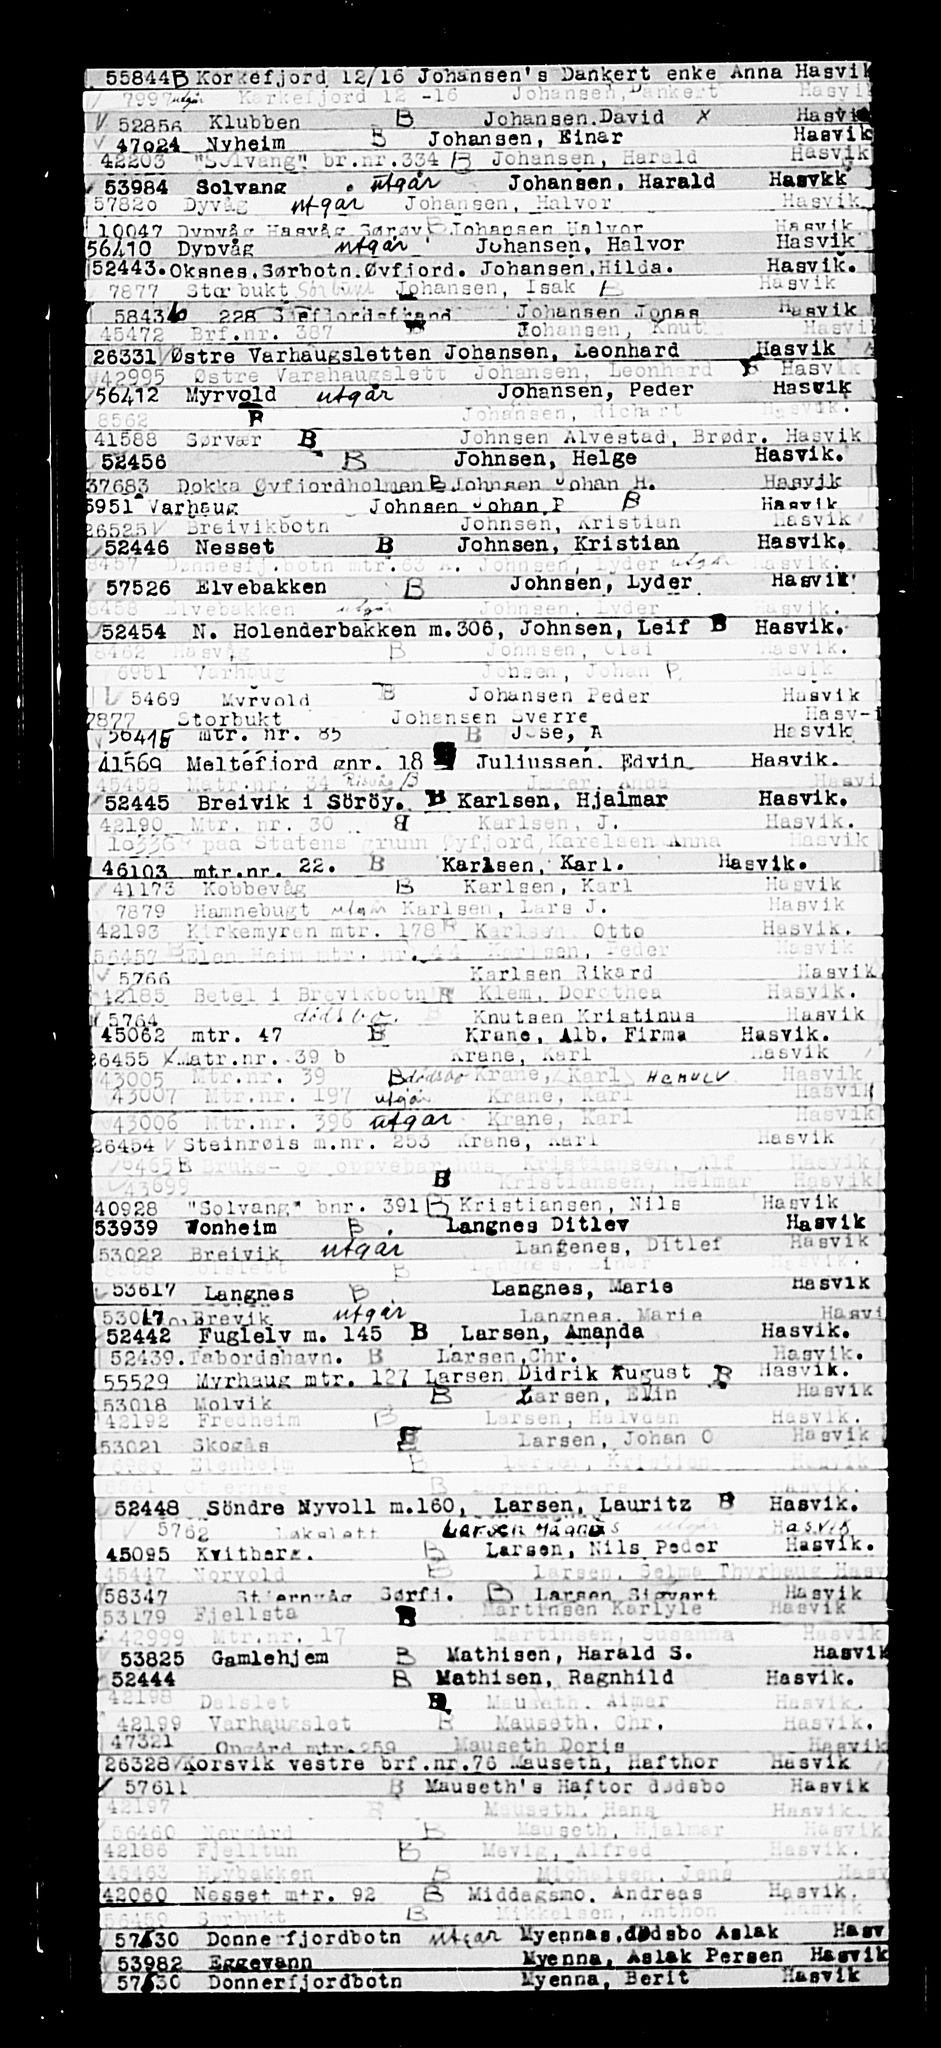 55844 B Korkefjord 12/16 Johansen's Dankert enke Anna Hasvik
7997 utgår Korkefjord 12 -16 Johansen, Dankert Hasvik
52856 Klubben B Johansen.David x Hasvik
47024 Nyheim B Johansen, Einar Hasvik
42203 "Solvang" br.nr.334 B Johansen, Harald Hasvik
53984 Solvang utgår Johansen, Harald Hasvkk
57820 Dyvåg utgår Johansen, Halvor Hasvik
10047 Dypvåg Hasvåg Sørøy B Johansen Halvor Hasvik
56410 Dypvåg utgår Johansen, Halvor Hasvik
52443. Oksnes.Sørbotn.Øvfjord. Johansen.Hilda. Hasvik.
7877 Storbukt Johansen, Isak B Hasvik
58436 228 Johansen Jonas Hasvik
45472 Brf.nr. 387 Johansen, Knut Hasvik
26331 Østre Varhaugsletten Johansen, Leonhard Hasvik
42995 Østre Varahaugslett Johansen, Leonhard Hasvik
56412 Myrvold utgår Johansen, Peder Hasvik
8562 B Johansen, Richart Hasvik.
41588 Sørvær B Johnsen Alvestad, Brødr. Hasvik
52456 B Johnsen, Helge Hasvik.
37683 Dokka Øyfjordholmen B Johnsen Johan H. Hasvik
6951 Varhaug Johnsen Johan P B Hasvik
26525 Breivikbotn Johnsen, Kristian Hasvik
52446 Nesset B Johnsen, Kristian Hasvik.
8457 Dønnesfj.botn mtr.63 Johnsen, Lyder utgår Hasvik.
57526 Elvebakken B Johnsen, Lyder Hasvik
8458 Elvebakken utgår Johnsen, Lyder Hasvik.
52454 N. Holenderbakken m.306, Johnsen, Leif B Hasvik.
8462 Hasvåg B Johnsen, Olai Hasvik.
6951 Varhaug Jonsen, Johan P. Hasik
5469 Myrvold B Johansen Peder Hasvik
7877 Storbukt Johansen Sverre Hasv-i
56415 mtr. nr. 85 B Jose, A Hasvik
41569 Meltefjord gnr. 18 Juliussen. Edvin Hasvik.
45458 Matr.nr. 34 B Jæger, Anna Hasvi
52445 Breivik i Söröy. B Karlsen, Hjalmar Hasvik.
42190 Mtr. nr. 30 B Karlsen, J. Hasvik.
10336 paa Statens grunn Øyfjord Karelsen Anna Hasvik
46103 mtr.nr. 22. B Karlsen, Karl. Hasvik.
41173 Kobbevåg B Karlsen, Karl Hasvik
7879 Hamnebugt utgår Karlsen, Lars J. Hasvik
42193 Kirkemyren mtr. 178 B Karlsen, Otto Hasvik.
56457 B Karlsen, Peder Hasvik
5766 Karlsen Rikard Hasvik
42185 Betel i Brevikbotn B Klem, Dorothea Hasvik.
5764 dødsbo. B Knutsen Kristinus Hasvik
45062 mtr. 47 B Krane, Alb. Firma Hasvik.
26455 Matr.nr. 39 b Krane, Karl Hasvik
43005 Mtr.nr. 39 B dødsbo Krane, Karl Hasvik
43007 Mtr.nr. 197 utgår Krane, Karl Hasvik
43006 Mtr.nr. 396 utgår Krane, Karl Hasvik
26454 Steinrøis m.nr. 253 Krane, Karl Hasvik
B Bruks- og Kristiansen, Alf Hasvik
43699 B Kristiansen, Helmar Hasvik
40928 "Solvang" bnr. 391 B Kristiansen, Nils Hasvik
53939 Wonheim B. Langnes Ditlev Hasvik
53022 Breivik utgår Langenes, Ditlef Hasvik
B Einar Hasvik.
53617 Langnes B Langnes, Marie Hasvik
Brevik utgår Langnes. Marie Hasvi
52442 Fuglelv m. 145 B Larsen, Amanda Hasvik.
52439. Tabordshavn. B Larsen.Chr. Hasvik.
55529 Myrhaug mtr. 127 Larsen Didrik August B Hasvik.
53018 Molvik B Larsen, Elin Hasvik
42192 Fredheim B Larsen, Halvdan Hasvik.
53021 Skogås B Larsen, Johan O Hasvik
Elenheim B Larsen, Kristian Hasvik
B Larsen, Lars Hasvik.
52448 Söndre Nyvoll m.160, Larsen, Lauritz B Hasvik.
5762 Løkslett Larsen Magnus utgår Hasvik
45095 Kvitberg. B Larsen, Nils Peder Hasvik.
45447 Norvold B Larsen, Selma Thyrhaug Hasv
58347 Stjernvåg Sørfj. B Larsen Sigvart Hasvik
53179 Fjellsta B Martinsen Karlyle Hasvik
42999 Mtr.nr. 17 Martinsen, Susanna Hasvik
53825 Gamlehjem B Mathisen, Harald S. Hasvik
52444 B Mathisen, Ragnhild Hasvik.
42198 Dalslet B Mauseth. Aimar Hasvik.
42199 Varhaugslet B Mauseth. Chr. Hasvik.
47321 Opgård mtr.259 Mauseth Doris Hasvik
26328 Korsvik vestre brf.nr.76 Mauseth, Hafthor Hasvik
57611 B Mauseth's Haftor dødsbo Hasvik
42197 B Mauseth. Hans Hasvik.
56460 Norgård B Mauseth, Hjalmar Hasvik
42186 Fjelltun B Mevig, Alfred Hasvik.
45463 Høybakken B Michelsen. Jens Hasv
42060 Nesset mtr. 92 B Middagsmo. Andreas Hasvik.
56459 Sørbukt B Mikkelsen, Anthon Hasvik
57530 Donnerfjordbotn utgår Myennas, dødsbo Aslak Hasv
53982 Eggevann Myenna, Aslak Persen Hasvik
57530 Donnerfjordbotn Myenna, Berit Hasvik